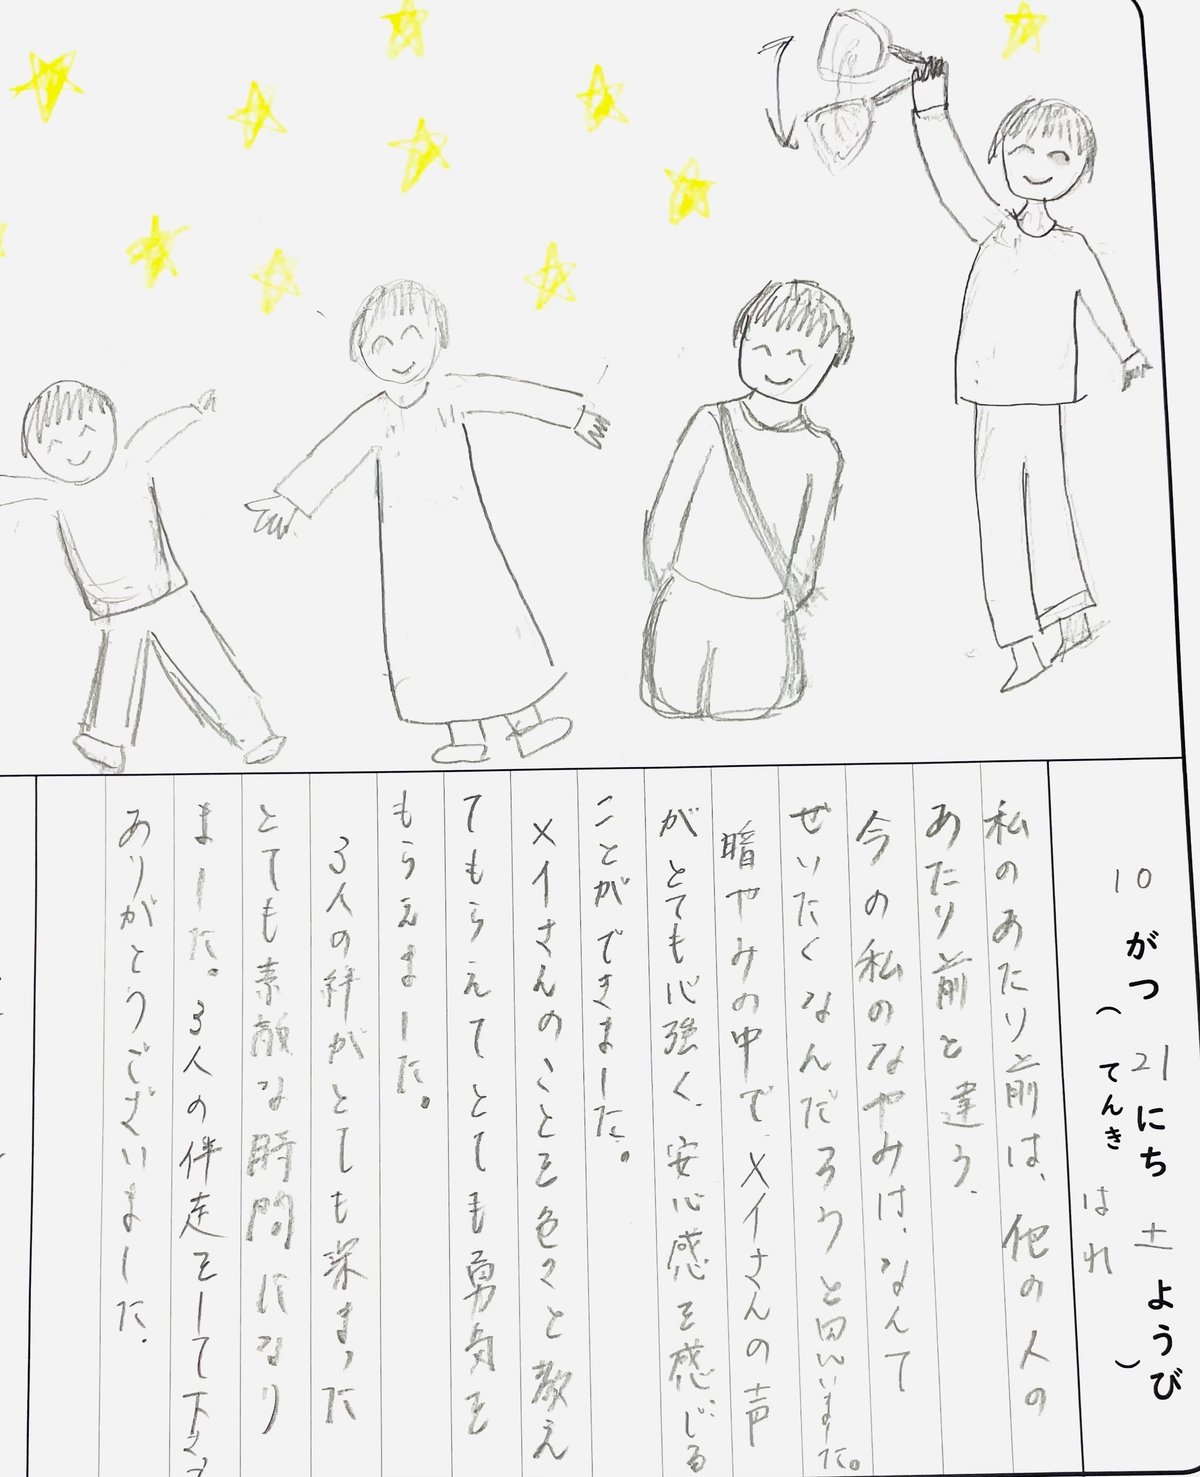 10 がつ 21 にち 土 ようび
(てんき はれ )
私のあたり前は、他の人の
あたり前と違う。
今の私のなやみは、なんて
ぜいたくなんだろうと思いました。
暗やみの中で、メイさんの声
がとても心強く、安心感を感じる
ことができました。
メイさんのことを色々と教え
てもらえてとても勇気を
もらえました。
3人の絆がとても深まった
とても素敵な時間になり
ました。3人の伴走をして下さり
ありがとうございました。